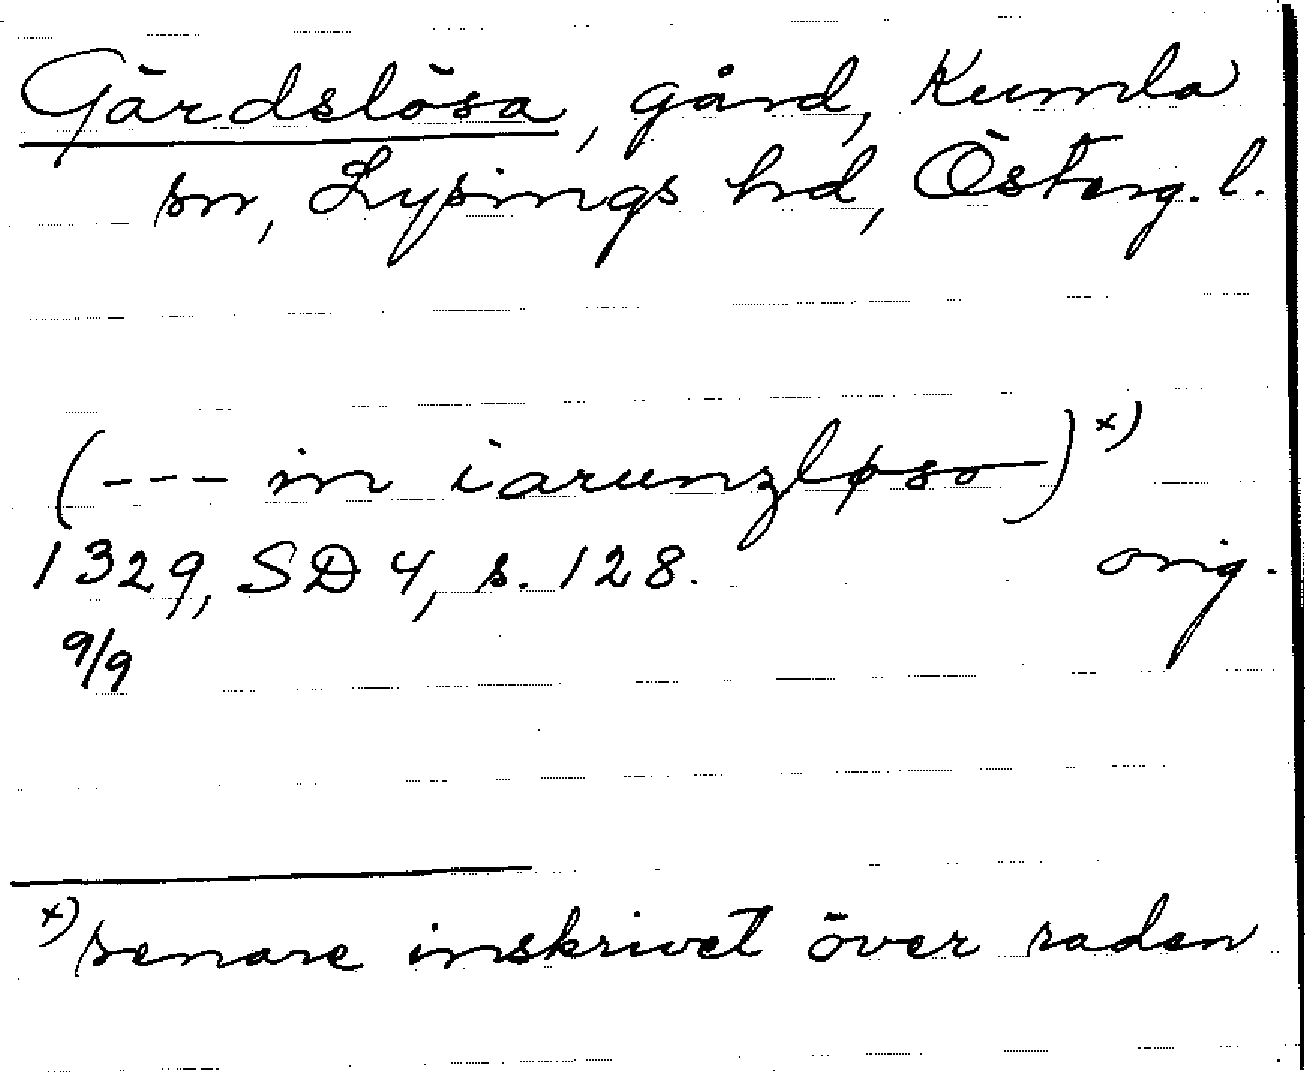 Gärdslösa, gård, Kumla
sn, Lysings hd, Österg. l.
(--- in iarunzløso)x)
1329, SD 4, s. 128. orig.
9/9
x) senare inskrivet över raden